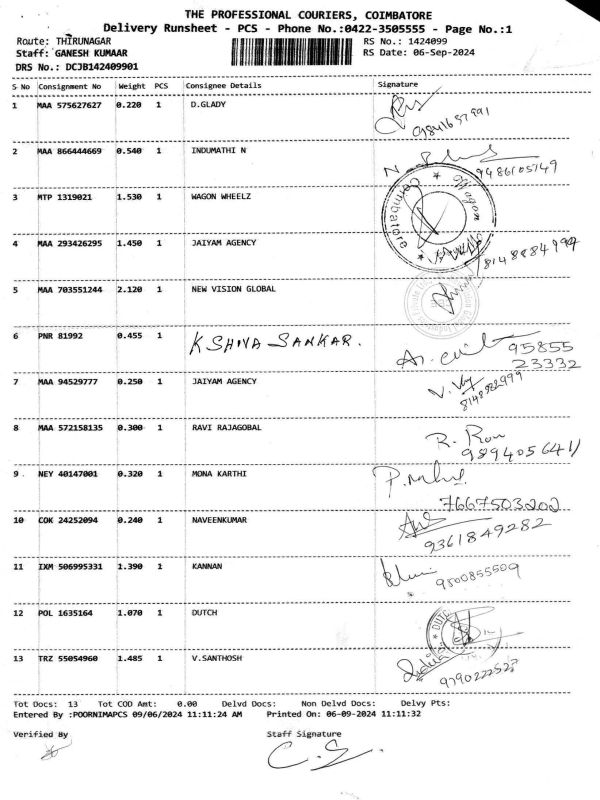 THE PROFESSIONAL COURIERS, COIMBATORE
Delivery Runsheet - PCS - Phone No.:0422-3505555 - Page No.:1
Route: THIRUNAGAR RS No.: 1424099
Staff: GANESH KUMAAR RS Date: 06-Sep-2024
DRS No.: DCJB142409901
S No Consignment No Weight PCS Consignee Details Signature
1 MAA 575627627 0.220 1 D.GLADY
2 MAA 866444669 0.540 1 INDUMATHI N 9486105749
3 MTP 1319021 1.530 1 WAGON WHEELZ Wagon Coimbatore
4 MAA 293426295 1.450 1 JAIYAM AGENCY
5 MAA 703551244 2.120 1 NEW VISION GLOBAL
6 PNR 81992 0.455 1 K SHIVA SANKAR. 95855
23332
7 MAA 94529777 0.250 1 JAIYAM AGENCY
8 MAA 572158135 0.300 1 RAVI RAJAGOBAL R. Ron
9894056411
9 NEY 40147001 0.320 1 MONA KARTHI
7667503202
10 COK 24252094 0.240 1 NAVEENKUMAR
9361849282
11 IXM 506995331 1.390 1 KANNAN 9500855509
12 POL 1635164 1.070 1 DUTCH
13 TRZ 55054960 1.485 1 V.SANTHOSH
9790222527
Tot Docs: 13 Tot COD Amt: 0.00 Delvd Docs: Non Delvd Docs: Delvy Pts:
Entered By :POORNIMAPCS 09/06/2024 11:11:24 AM Printed On: 06-09-2024 11:11:32
Verified By Staff Signature
C. S.